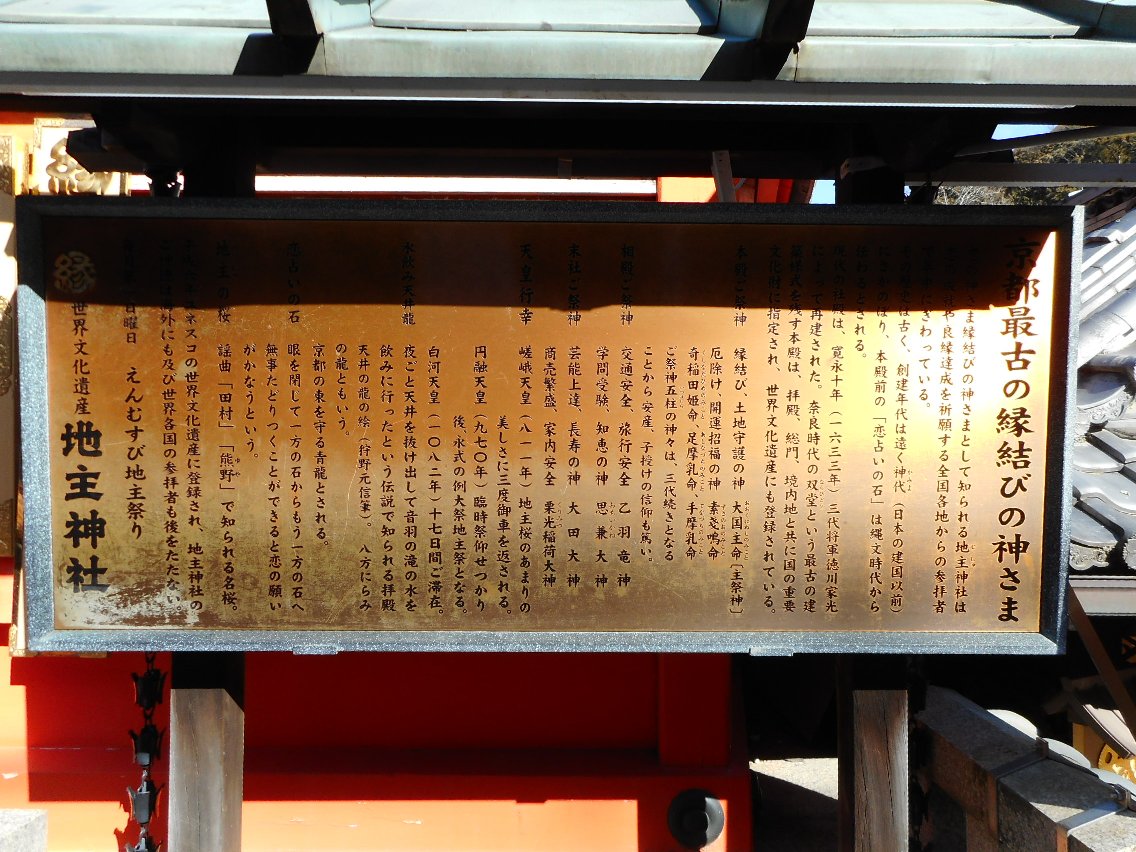 京都最古の縁結びの神さま
神さま縁結びの神さまとして知られる地主神社は
や良縁達成を祈願する全国各地からの参拝者
で年中にぎわっている。
その歴史は古く、創建年代は遠く神代(日本の建国以前)
にさかのぼり、本殿前の「恋占いの石」は縄文時代から
伝わるとされる。
現代の社殿は、寛永十年(一六三三年)三代将軍徳川家光
によって再建された。奈良時代の双堂という最古の建
築様式を残す本殿は、拝殿、総門、境内地と共に国の重要
文化財に指定され、世界文化遺産にも登録されている。
本殿ご祭神 縁結び、土地守護の神 大国主命〔主祭神〕
厄除け、開運招福の神 素戔嗚命
奇稲田姫命、足摩乳命、手摩乳命
ご祭神五柱の神々は、三代続きとなる
ことから安産、子授けの信仰も篤い。
相殿ご祭神 交通安全、旅行安全 乙羽竜神
学問受験、知恵の神 思兼大神
末社ご祭神 芸能上達、長寿の神 大田大神
商売繁盛、家内安全 栗光稲荷大神
天皇行幸 嵯峨天皇(八一一年)地主桜のあまりの
美しさに三度御車を返される。
円融天皇(九七〇年)臨時祭仰せつかり
後、永式の例大祭地主祭となる。
白河天皇(一〇八二年)十七日間ご滞在。
水飲み天井龍 夜ごと天井を抜け出して音羽の滝の水を
飲みに行ったという伝説で知られる拝殿
天井の龍の絵(狩野元信筆)。八方にらみ
の龍ともいう。
京都の東を守る青龍とされる。
恋占いの石 眼を閉じて一方の石からもう一方の石へ
無事たどりつくことができると恋の願い
がかなうという。
地主の桜 謡曲「田村」「熊野」で知られる名桜。
ユネスコの世界文化遺産に登録され、地主神社の
ご神徳は海外にも及び世界各国の参拝者も後をたたない。
日曜日 えんむすび地主祭り
縁 世界文化遺産 地主神社